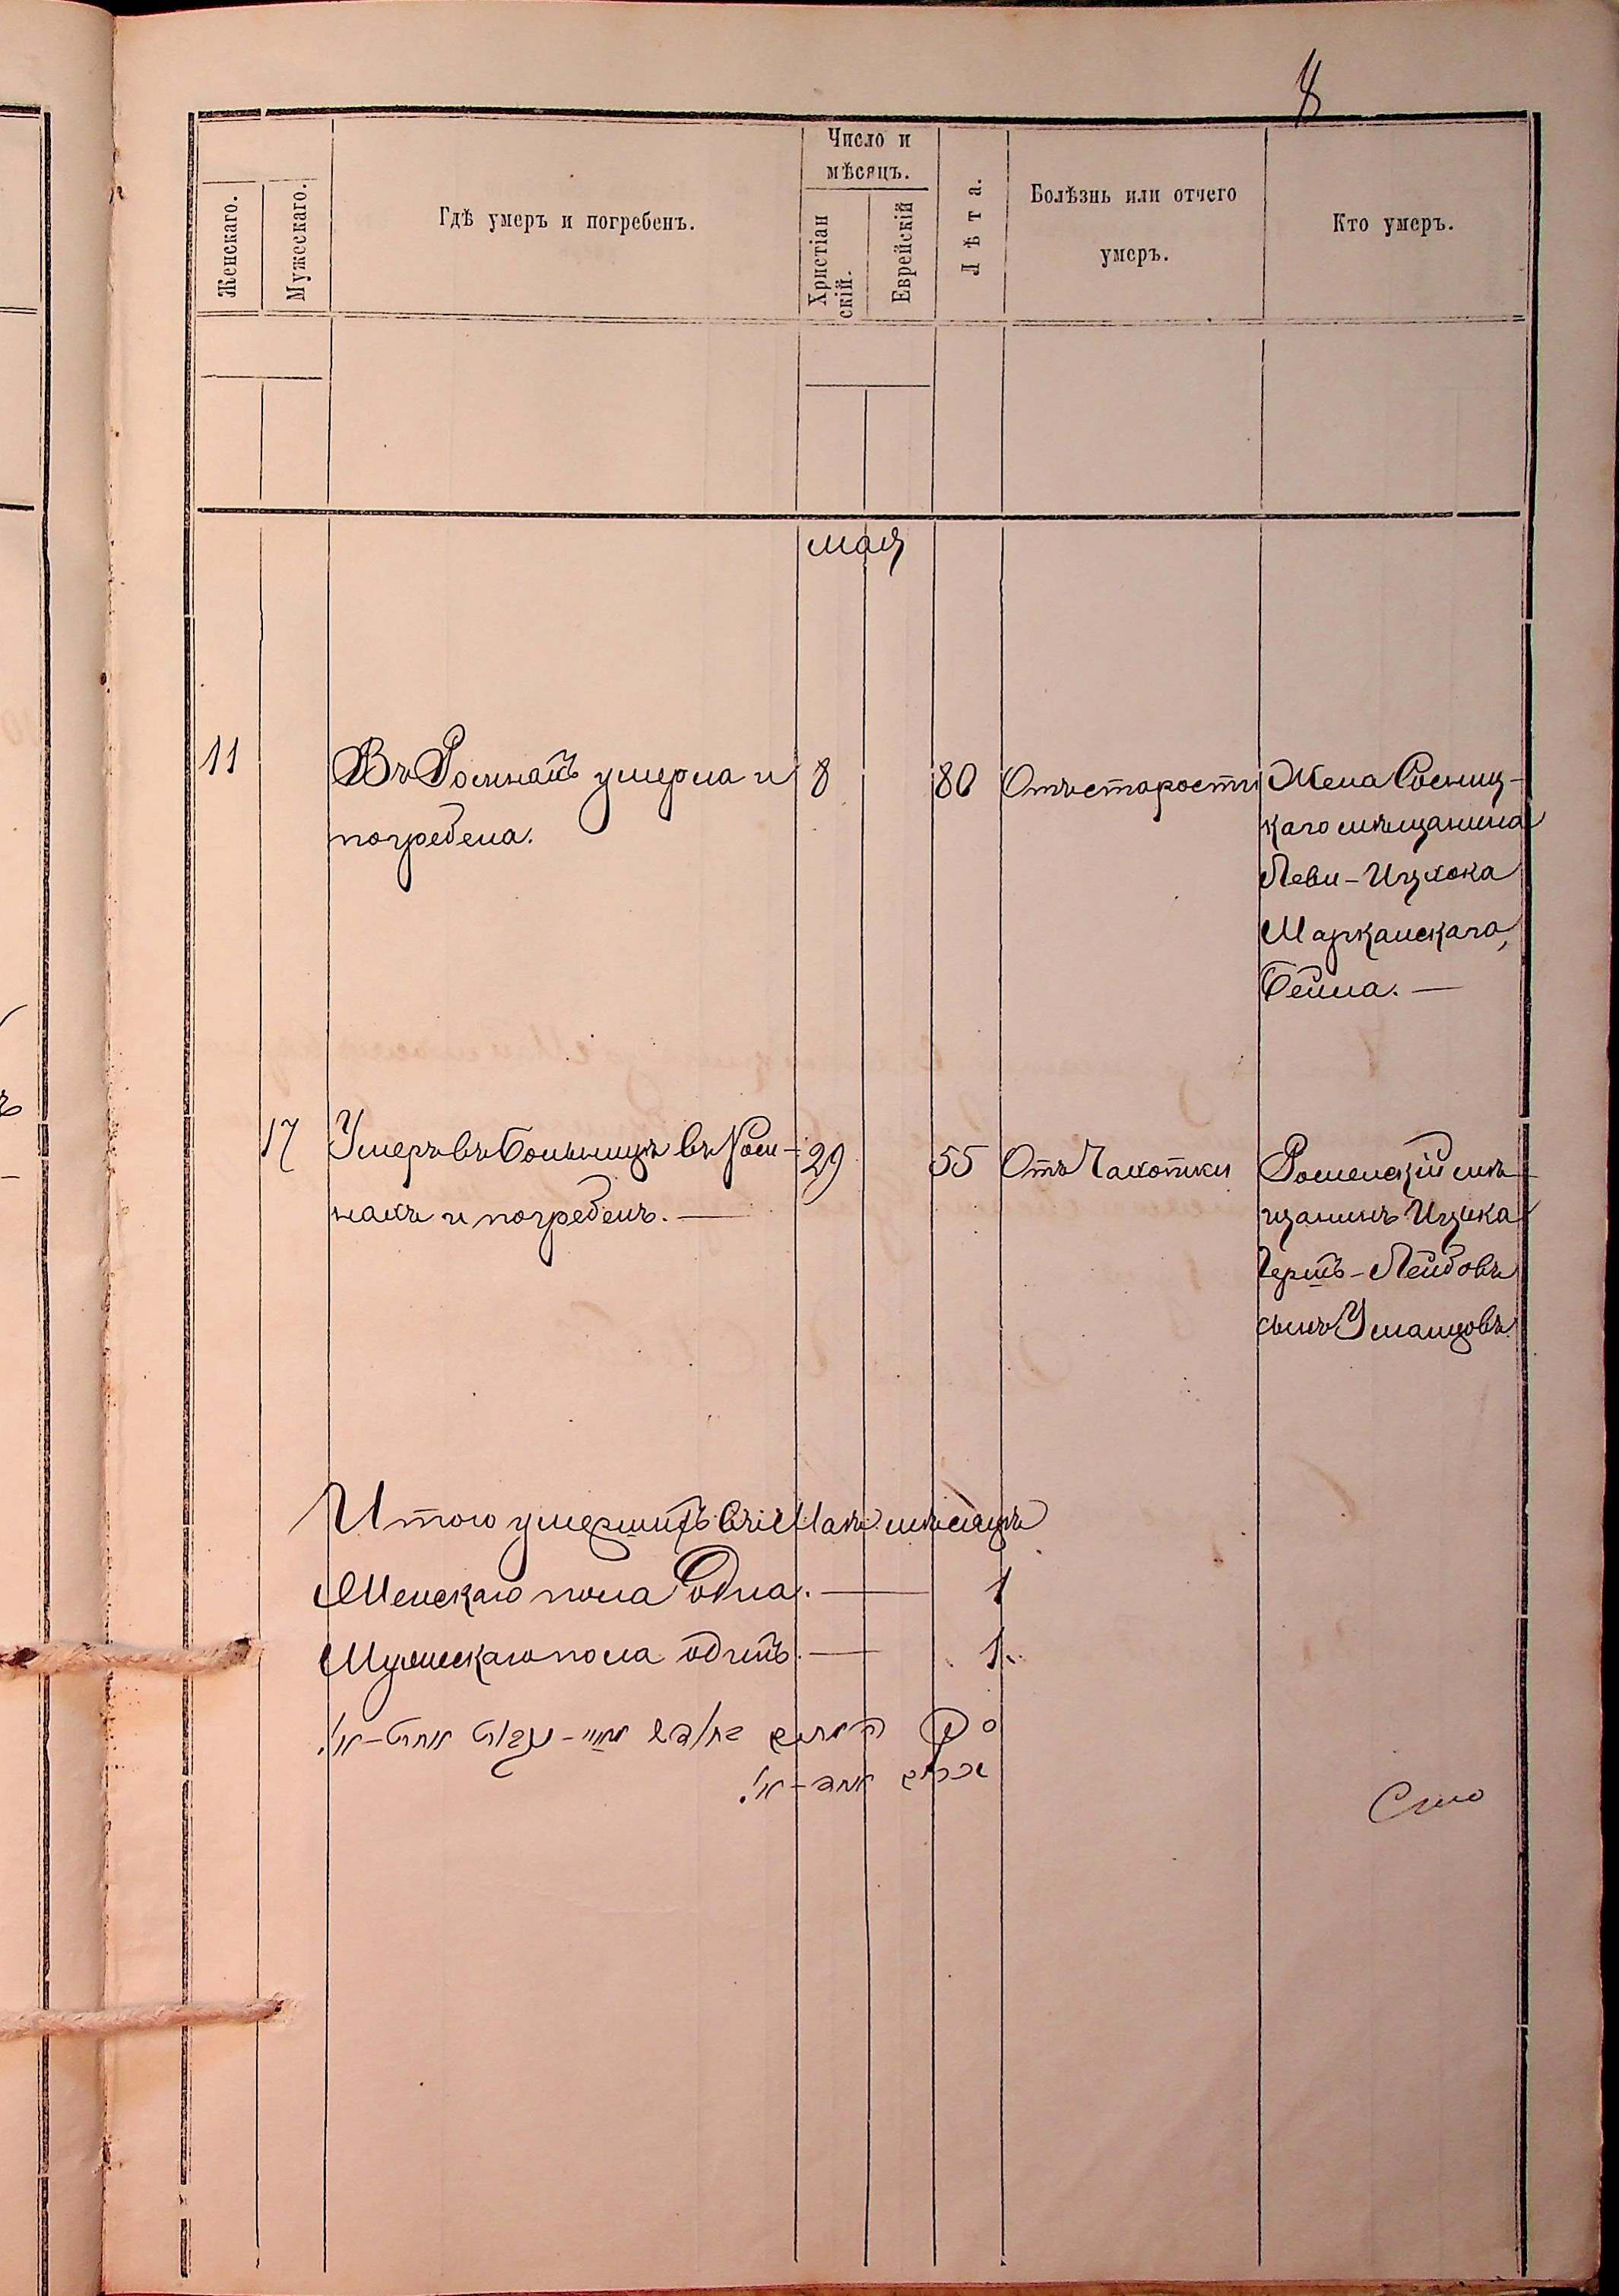 8
Женскаго.
Мужескаго.
Гдѣ умеръ и погребенъ.
Число и
мѣсяцъ.
Христіан
скій.
Еврейскій
Лѣта.
Болѣзнь или отчего
умеръ.
Кто умеръ.
мая
11
Въ Ромнахъ умерла и
погребена.
8
80
Отъ старости
Жена Сосниц-
каго мѣщанина
Леви-Ицхока
Бейла. —
17
Умеръ въ Больницѣ въ Ром-
нахъ и погребенъ. —
29
55
Отъ Чахотки
Роменскій мѣ-
щанинъ Ицика
Гершъ-Лейбовъ
сынъ Уманцовъ
Итого умершихъ въ Маѣ мѣсяцѣ
Женскаго пола Одна. — 1
Мужескаго пола одинъ. — 1.
Сто